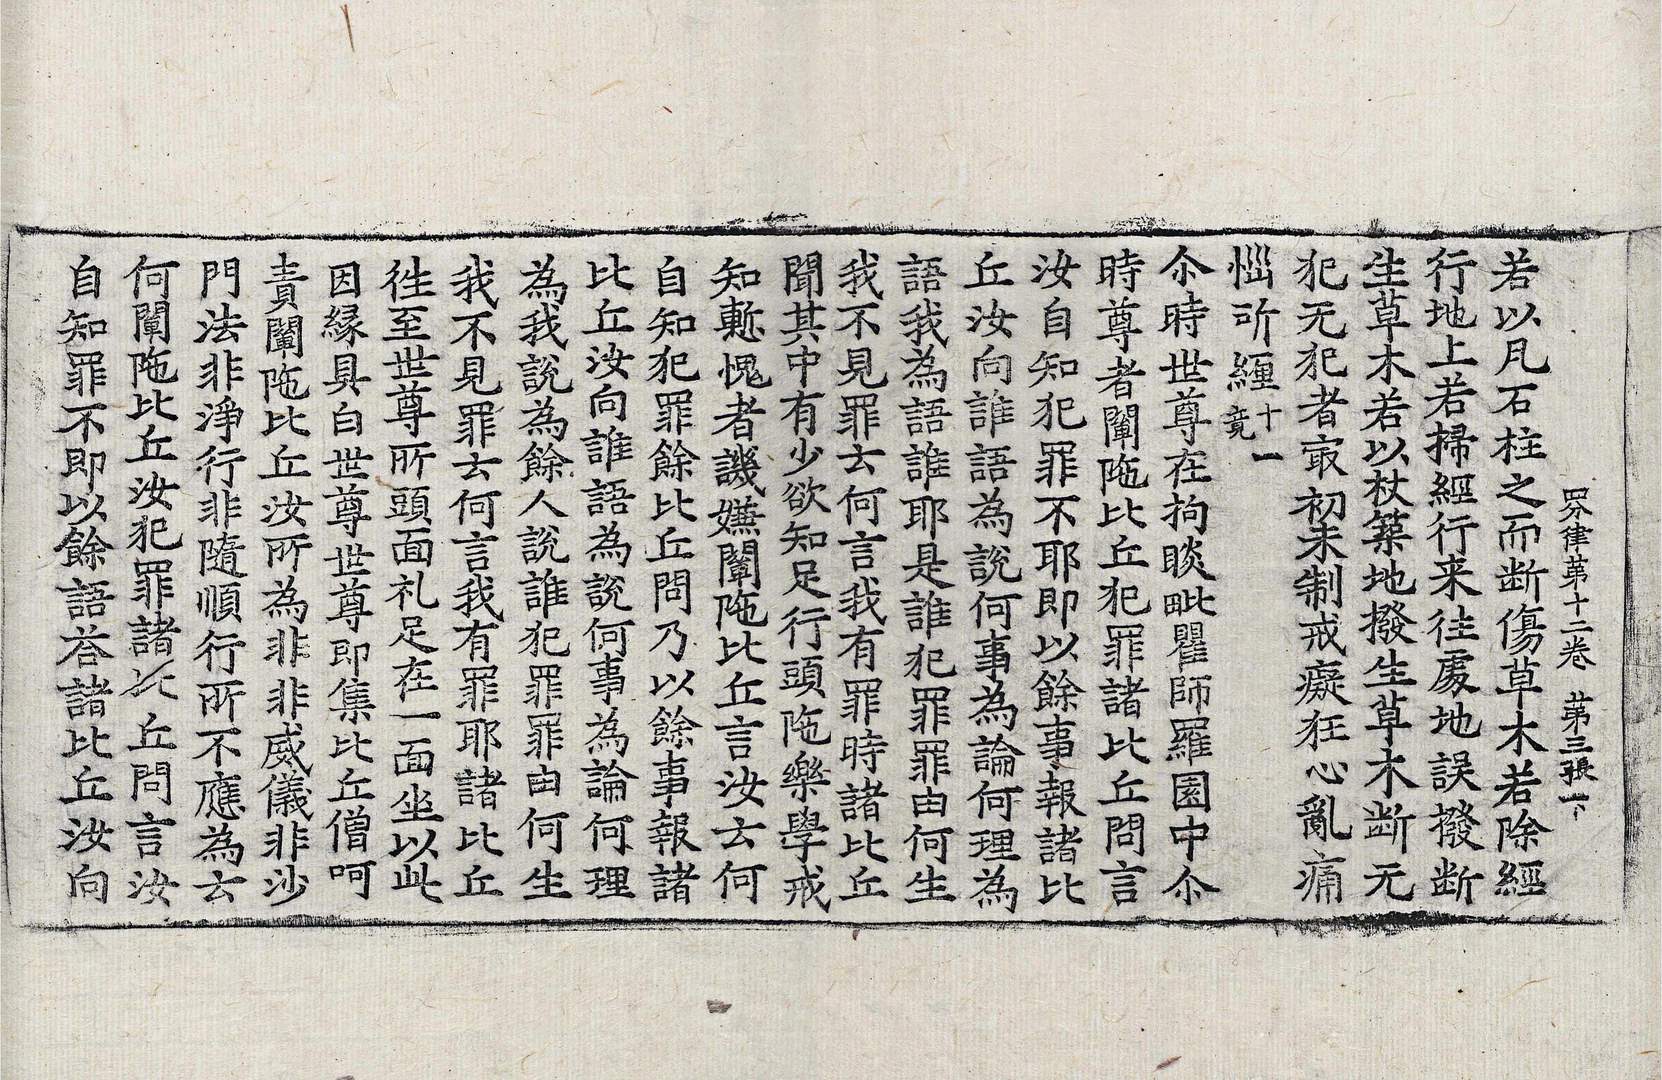 四分律第十二卷 第三張 下
若以凡石柱之而断傷草木若除經
行地上若掃經行来往處地誤撥断
生草木若以杖築地撥生草木断无
犯无犯者㝡初未制戒癡狂心亂痛
惱所纏十一竟
尒時世尊在拘睒毗瞿師羅園中尒
時尊者闡陁比丘犯罪諸比丘問言
汝自知犯罪不耶即以餘事報諸比
丘汝向誰語為說何事為論何理為
語我為語誰耶是誰犯罪罪由何生
我不見罪云何言我有罪時諸比丘
聞其中有少欲知足行頭陁樂學戒
知慙愧者譏嫌闡陁比丘言汝云何
自知犯罪餘比丘問乃以餘事報諸
比丘汝向誰語為說何事為論何理
為我說為餘人說誰犯罪罪由何生
我不見罪云何言我有罪耶諸比丘
徃至世尊所頭面礼足在一面坐以此
因縁具白世尊世尊即集比丘僧呵
責闡陁比丘汝所為非非威儀非沙
門法非淨行非隨順行所不應為云
何闡陁比丘汝犯罪諸比丘問言汝
自知罪不即以餘語荅諸比丘汝向